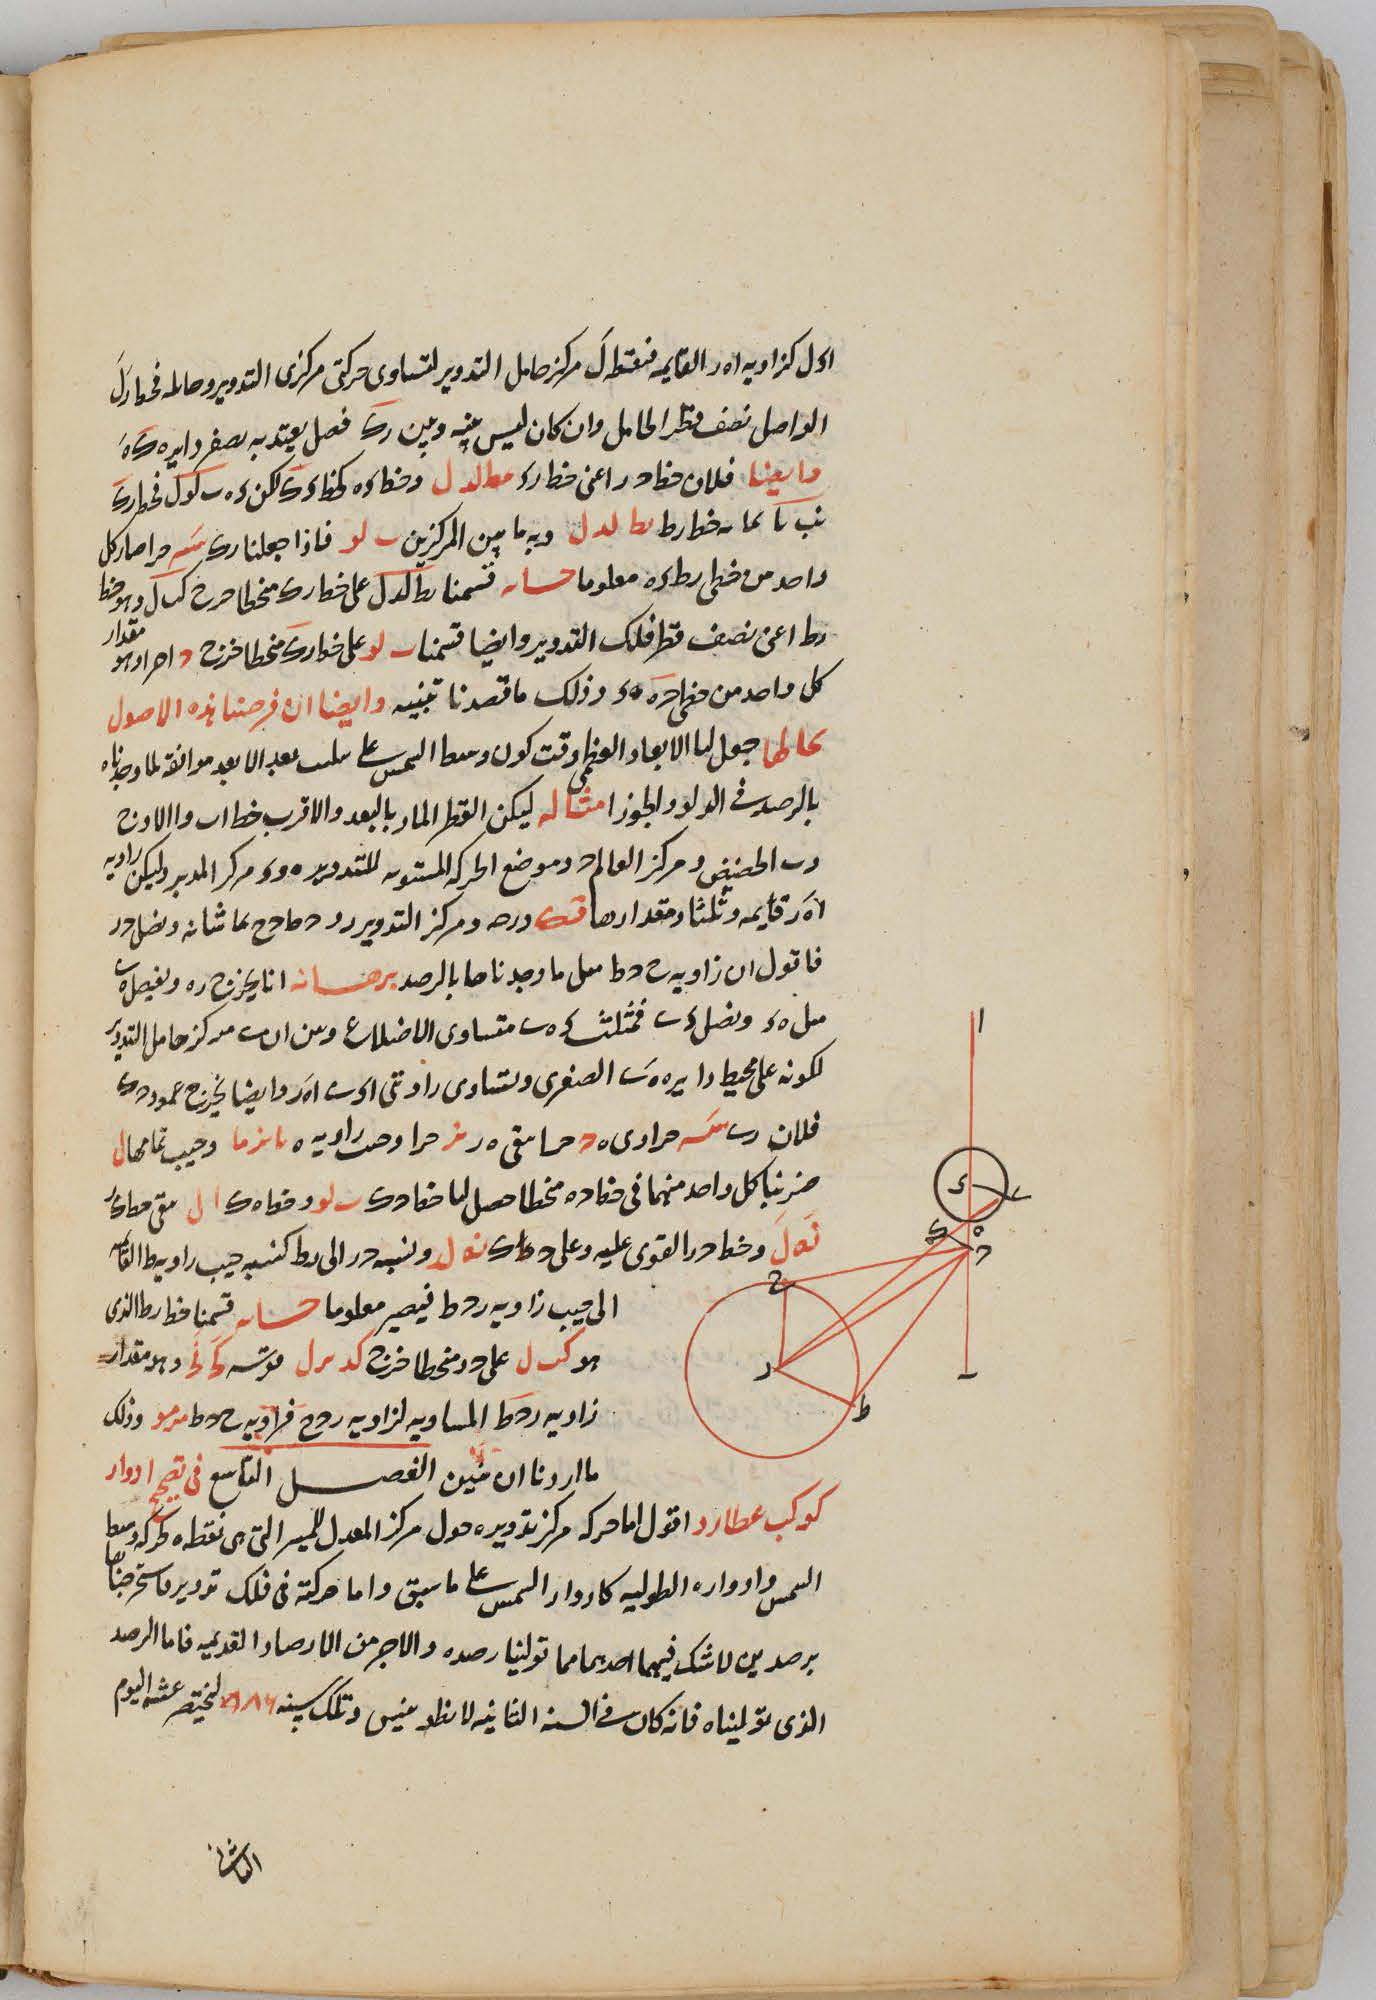 اول كزاويه اه ر القايمه فنقطه ل مركز حامل التدوير لتساوى حركتى مركزى التدوير وحامله فخط ر ل
الواصل نصف قطر الحامل وان كان ليس بينه وبين رك فصل يعتد به لصغر دايره
وايضا فلان خط د ر اعنى خط ر ك
خط رط يط لد ل وبه ما بين المركزين ب لو فاذا جعلنا رك سه حرا صار كل
واحد من خطى رط معلوما حسابه قسمنا يط لد ل على خط رك منحطا خرج كب ل وهو خط
رط اعنى نصف قطر فلك التدوير وايضا قسمنا ب لو على خط رك منحطا خرج د احرا وهو مقدار
كل واحد من خطى وذلك ما قصدنا تبيينه وايضا ان فرضنا هذه الاصول
بحالها جعل لنا الابعاد العظمى وقت كون وسط الشمس على مثلث بعد الابعد موافقه لما وجدناه
بالرصد فى الدلو والجوزا مثاله ليكن القطر المار بالبعد والاقرب خط اب و ا الاوج
وب الحضيض ومركز العالم ح وموضع الحركه المستويه للتدوير ه و ى مركز المدير وليكن زاويه
اه ر قايمه وثلثا ومقدارها قك درجه ومركز التدوير ر و ح ط ح ح تماسانه ونصل ح ر
فاقول ان زاويه ح ح ط مثل ما وجدناها بالرصد برهانه انا نخرج ر ه ونفصل ه ب
مثل ه ى ونصل ى ب فمثلث ى ه ب متساوى الاضلاع وبين ان ب مركز حامل التدوير
لكونه على محيط دايره ه ب الصغرى وتساوى زاوتى اى ب اه ر وايضا نخرج عمود ح ك
فلان ر ب سه حرا و ى ه د حرا بقى ه ر نز حرا وجيب زاويه ه نا نز ما وجيب تمامها ل
ضربنا كل واحد منهما فى خط ح ه منحطا حصل لنا خط ح ك ب لو وخط ه ك ا ل بقى خط ك ر
نه ل وخط ح ر القوى عليه وعلى ح ك نه ل ونسبه ح ر الى رط كنسبه جيب زاويه ط القايمه
الى جيب زاويه ر ح ط فيصير معلوما حسابه قسمنا خط رط الذى
هو كب ل على ح ر منحطا خرج كد يرل قوسه وهو مقدار
زاويه ر ح ط المساويه لزاويه ر ح ح فزاويه ح ح ط مر مو وذلك
ما اردنا ان نبين الفصل التاسع فى تصحيح ادوار
كوكب عطارد اقول اما حركه مركز تدويره حول مركز المعدل للمسير التى هى نقطه ه كحركه وسط
الشمس وادواره الطوليه كادوار الشمس على ما سبق واما حركته فى فلك تدويره فاستخرجناها
برصدين لا شك فيهما احدهما مما تولينا رصده والاخر من الارصاد القديمه فاما الرصد
الذى توليناه فانه كان فى السنه الثانيه لانطونينس وتلك سنه ٨٨٦ لبختنصر عشيه اليوم
الثانى
ا
ى
ه
ك
ح
ب
ح
ر
ط